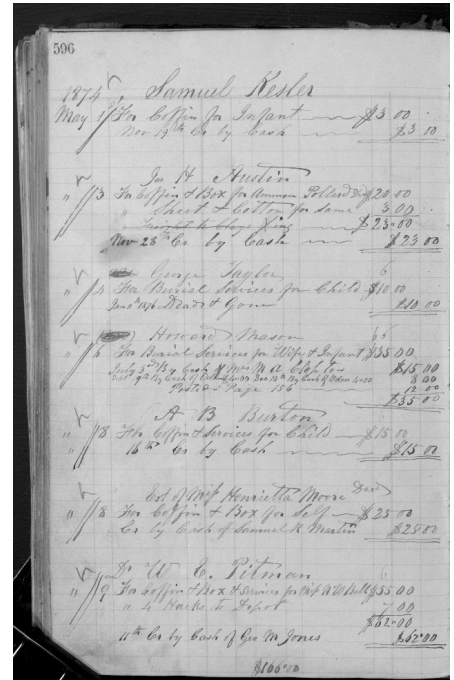 596
1874 Samuel Kesler
May 1 For Coffin for Infant $3 00
Nov 19th Cr by Cash $3 00
Jas H Austin
" 3 For Coffin & Box for Pollard Decd $20.00
" Sheet & Cotton for same 3 00
$23.00
Nov 28th Cr by Cash $23 00
George Taylor 6
" 4 For Burial Services for Child $10 00
1876 Dead & Gone $10.00
Howard Mason 66
" 6 For Burial Services for Wife & Infant $35 00
July 3rd By Cash of Mrs M A $15 00
9th By Cash of Dec 14th By Cash of 4.00 8 00
Posted Page 156 12 00
$35.00
A B Burton
" 8 For Coffin & Services for Child $15 00
16th Cr by Cash $15 00
Est of Mrs Henrietta Moore Decd
" 8 For Coffin & Box for Self $25 00
Cr by Cash of Samuel R Martin $25.00
Dr W. E. Pitman 6
" 9 For Coffin & Box & Services for Mrs A W Bell $55.00
" 4 Hacks to Depot 7.00
$62.00
11th Cr by Cash of Geo M Jones $62.00
$166.00